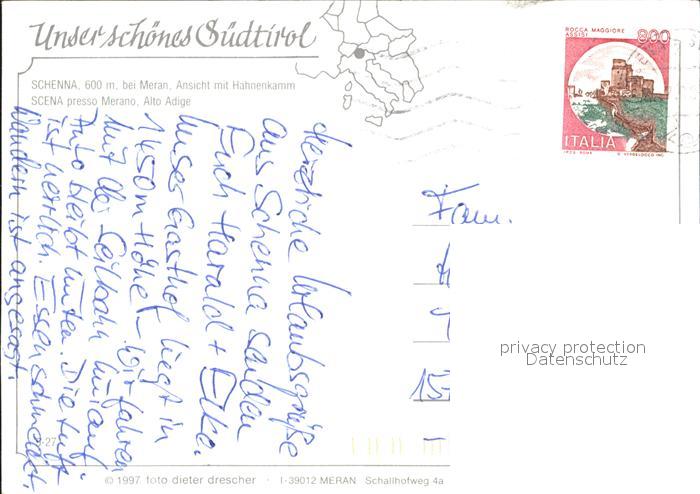 Unser schönes Südtirol
SCHENNA, 600 m, bei Meran, Ansicht mit Hahnenkamm
SCENA presso Merano, Alto Adige
ROCCA MAGGIORE
ASSISI
800
ITALIA
Herzliche Urlaubsgrüße
aus Schenna senden
Euch Harald + Elke.
Unser Gasthof liegt in
1450 m Höhe. Wir fahren
mit der Seilbahn hinauf
Auto bleibt unten. Die Luft
ist herrlich. Essen schmeckt.
Wandern ist angesagt.
Fam.
15
privacy protection
Datenschutz
© 1997 foto dieter drescher · I-39012 MERAN Schallhofweg 4a